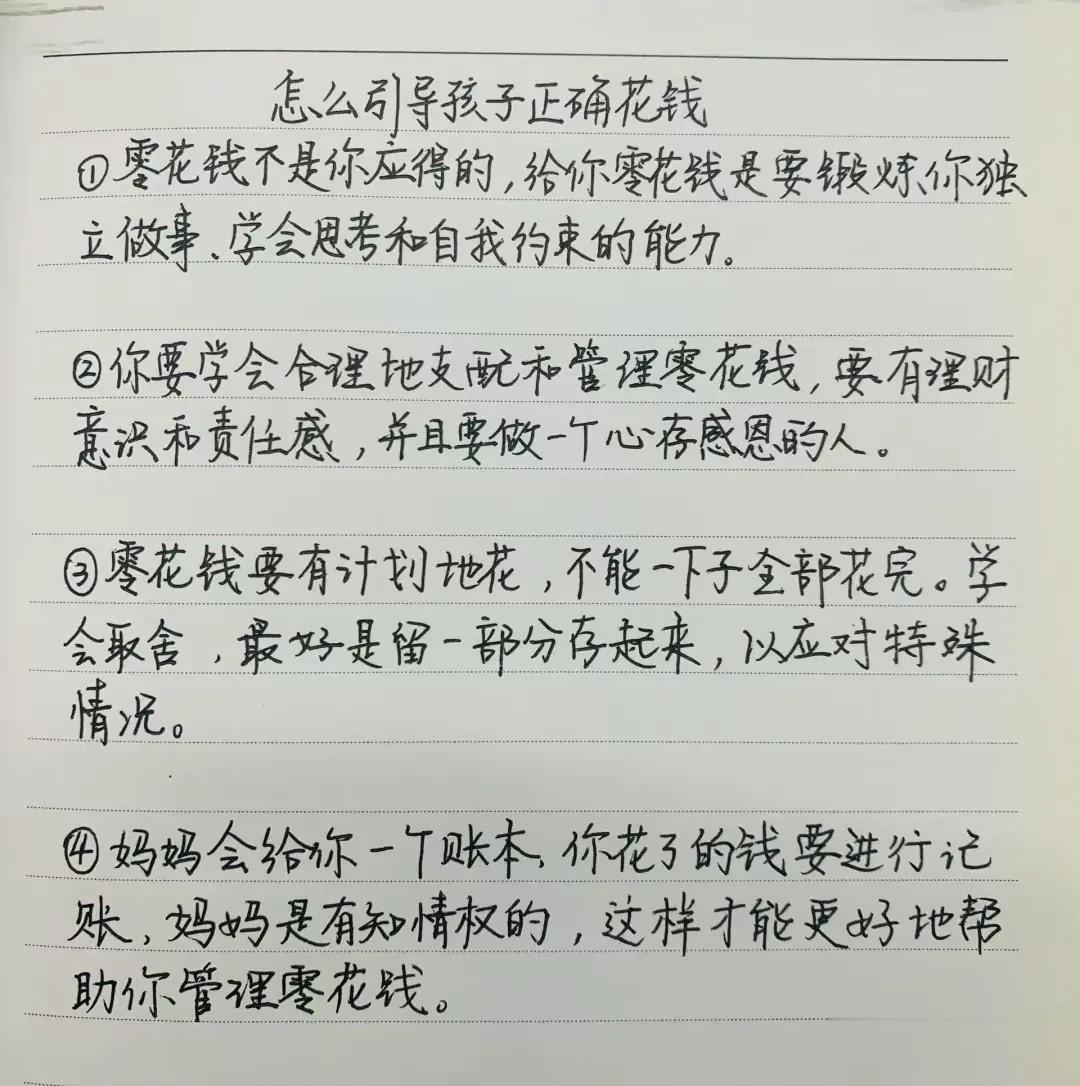 怎么引导孩子正确花钱
①零花钱不是你应得的,给你零花钱是要锻炼你独
立做事、学会思考和自我约束的能力。
②你要学会合理地支配和管理零花钱,要有理财
意识和责任感,并且要做一个心存感恩的人。
③零花钱要有计划地花,不能一下子全部花完。学
会取舍,最好是留一部分存起来,以应对特殊
情况。
④妈妈会给你一个账本,你花了的钱要进行记
账,妈妈是有知情权的,这样才能更好地帮
助你管理零花钱。